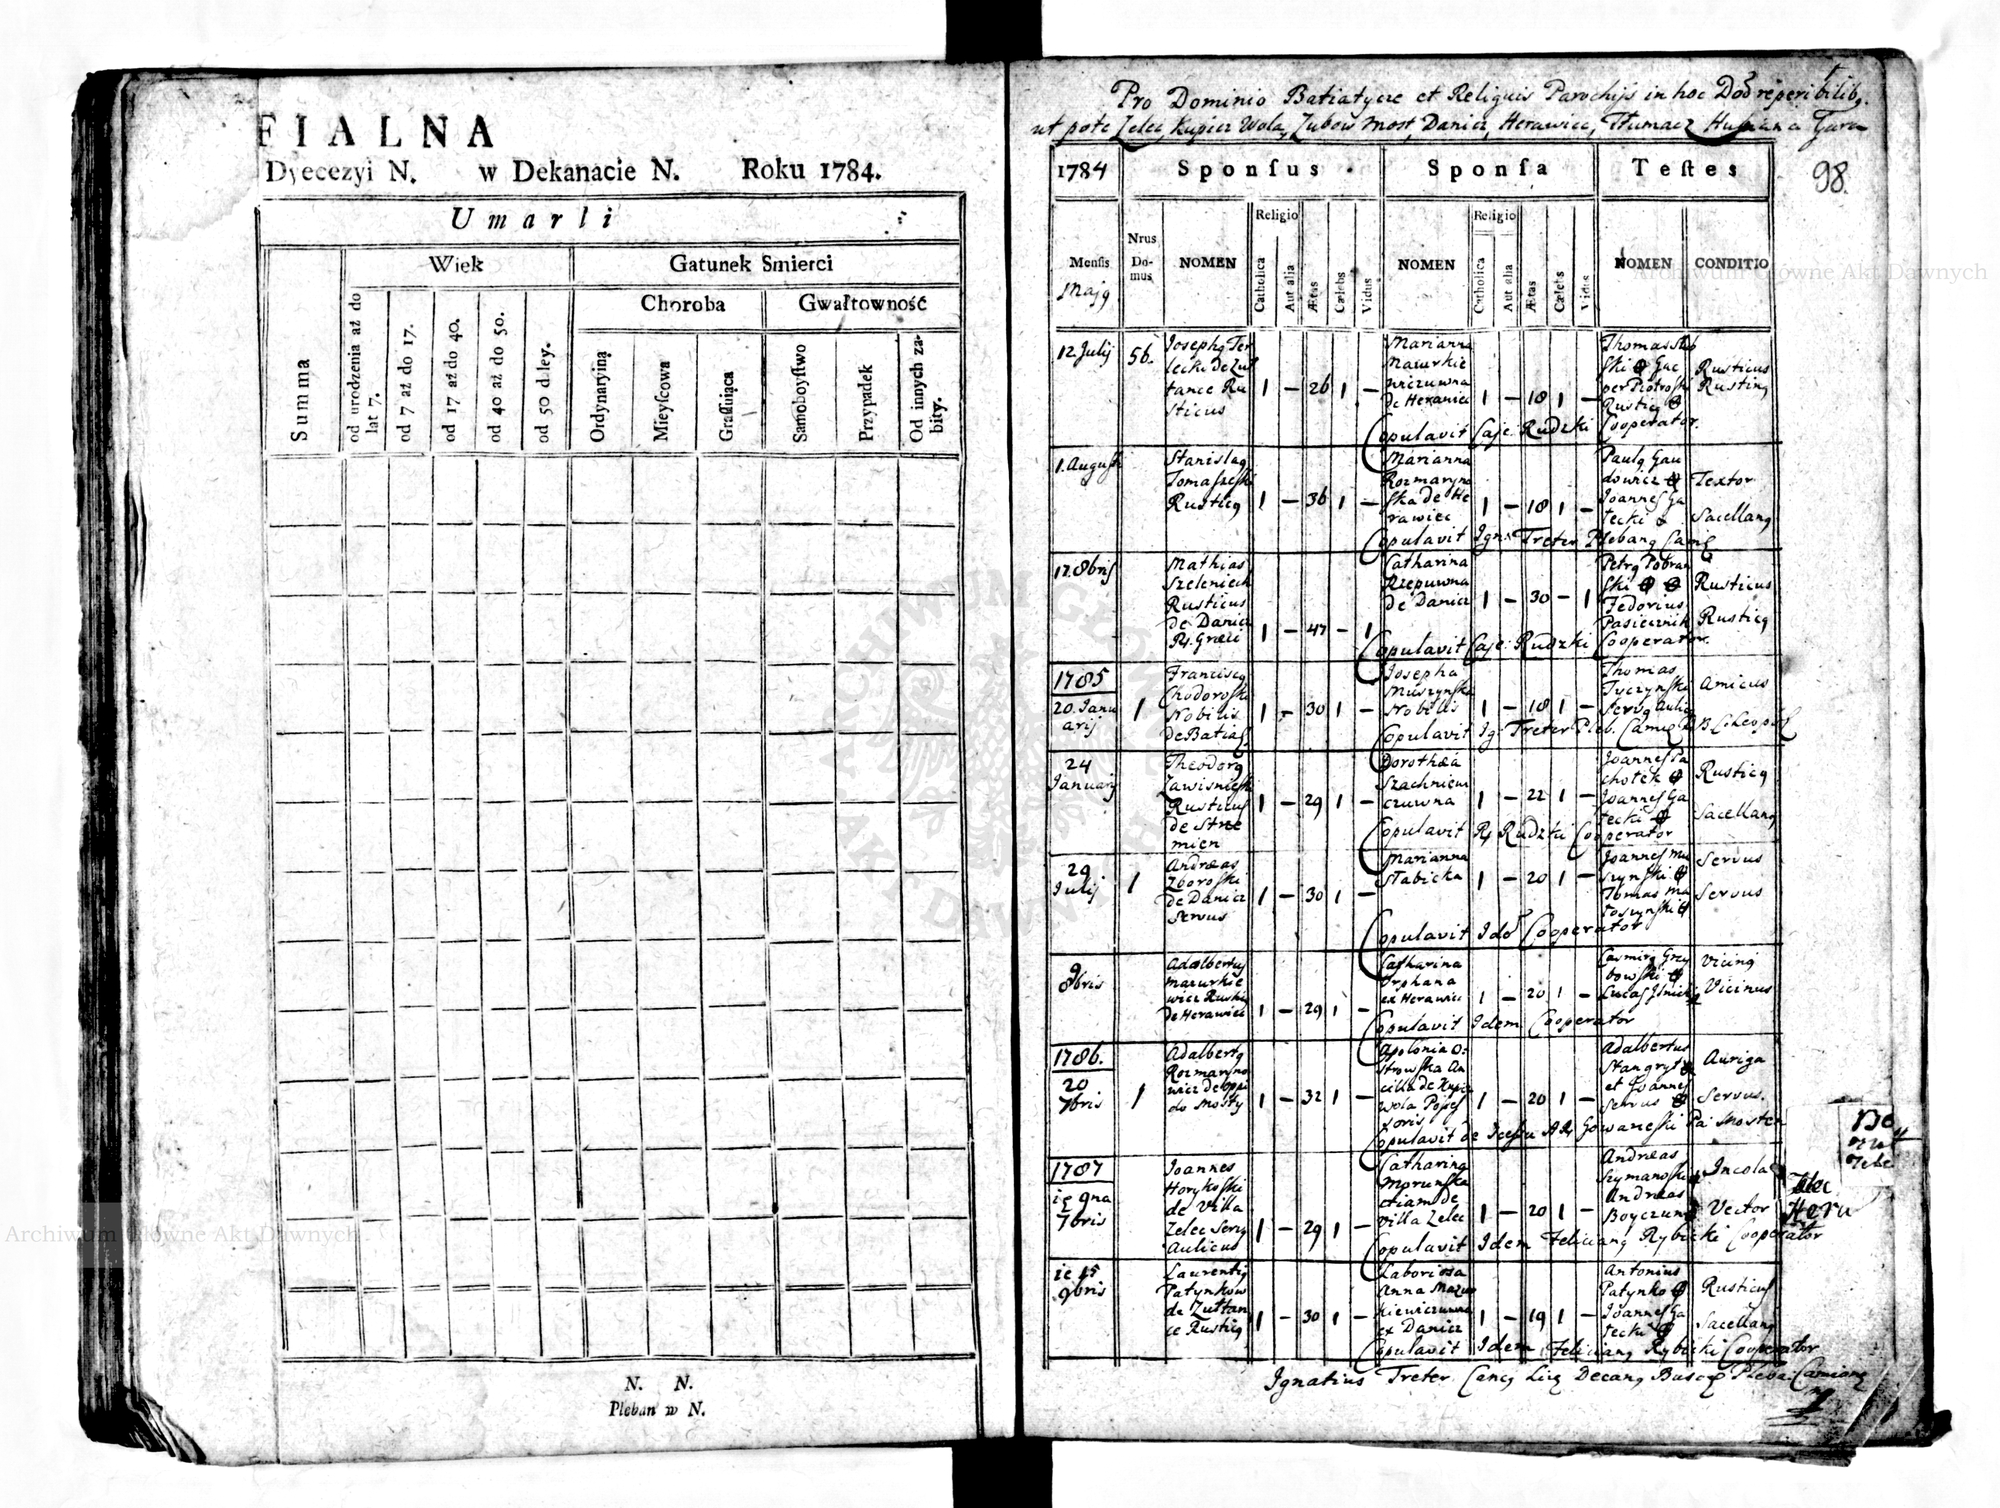 FIALNA
Dyecezyi N. w Dekanacie N. Roku 1784.
Umarli
Wiek
Gatunek Smierci
Choroba
Gwałtowność
Summa
od urodzenia aż do lat 7.
od 7 aż do 17.
od 17 aż do 40.
od 40 aż do 50.
od 50 daley.
Ordynaryiną
Mieyſcowa
Graſſuiąca
Samoboyſtwo
Przypadek
Od innych zabity.
N. N.
Pleban w N.
Pro Dominio Batiatycze et Reliquis Parochijs in hoc reperibilibq.
ut pote Zelec, Kupicz Wola, Zubow Most, Danicz, Herawiec, Tłumacz
98.
1784 Sponſus Sponſa Teſtes
Menſis
Majq
Nrus Domus
NOMEN
Religio
Catholica
Aut alia
Ætas
Cælebs
Vidus
NOMEN
Religio
Catholica
Aut alia
Ætas
Cælebs
Vidus
NOMEN
CONDITIO
12. Julij 56.
Josephq Ter
lecki de Zuł
tance Ru
sticus
1 — 26 1 —
Marianna
Mazurkie
wiczuwna
de Herawiec
1 — 18 1 —
Rusticus
Rusticq
Copulavit Caje: Rudzki Cooperator.
1. Augusti
Stanislaq
Tomaszeſki
Rusticq
1 — 36 1 —
Marianna
Rozmaryno
ſka de He
rawiec
1 — 18 1 —
Paulq Gau
dowicz
Joannes Ga
łecki
Textor
Sacellanq
Copulavit Ign: Treter Plebanq Cam
12. 8bris
Mathias
Szelenieck
Rusticus
de Danicz
Rs. Græci
1 — 47 — 1
Catharina
Rzepuwna
de Danicz
1 — 30 — 1
Petrq Pobran
ſki
Fedorius
Pasiecznik
Rusticus
Rusticq
Copulavit Caje: Rudzki Cooperator.
1785
20. Janu
arij
1
Franciscq
Chodoroſki
Nobilis
de Batiat
1 — 30 1 —
Josepha
Muszynſka
Nobilis
1 — 18 1 —
Thomas
Tyczynſki
Servq Aulicq
Amicus
Copulavit Ig: Treter Pleb.
24
Januarij
Theodorq
Zawisnieſki
Rusticus
de Strze
mien
1 — 29 1 —
Dorothæa
Szachniew
czuwna
1 — 22 1 —
Joannes Pa
chołek
Joannes Ga
łecki
Rusticq
Sacellanq
Copulavit Rs Rudzki Cooperator
29
Julij
1
Andreas
Zboroſki
de Danicz
Servus
1 — 30 1 —
Marianna
Słabicka
1 — 20 1 —
Joannes Mu
szynſki
Tomas Ma
toszynſki
Servus
Servus
Copulavit Idem Cooperator
9
8bris
Adalbertus
Mazurkie
wicz Rusticq
de Herawiec
1 — 29 1 —
Catharina
Orphana
ex Herawiec
1 — 20 1 —
Casmirq Grzy
bowſki
Vicinq
Vicinus
Copulavit Idem Cooperator
1786.
20
7bris
1
Adalbertq
Rozmaryno
wicz de oppi
do Mosty
1 — 32 1 —
Apolonia O:
strowſka An
cilla de Kupicz
wola
1 — 20 1 —
Adalbertus
Stangryt
et Joannes
Servus
Auriga
Servus.
1787
7bris
Joannes
Horykoſki
de Villa
Zelec Servq
Aulicus
1 — 29 1 —
Catharina
Morunſka
etiam de
Villa Zelec
1 — 20 1 —
Andreas
Szymanoſki
Andreas
Boyczun
Incola
Vector
Copulavit Idem Felicianq Rybicki Cooperator
15
9bris
Laurentiq
Patynkow
de Zułtan
ce Rusticq
1 — 30 1 —
Laboriosa
Anna Mazur
kiewiczuwna
ex Danicz
1 — 19 1 —
Antonius
Patynko
Joannes Ga
łecki
Rusticus
Sacellanq
Copulavit Idem Felicianq Rybicki Cooperator
Ignatius Treter
Archiwum Główne Akt Dawnych
Archiwum Główne Akt Dawnych
ARCHIWUM GŁÓWNE AKT DAWNYCH